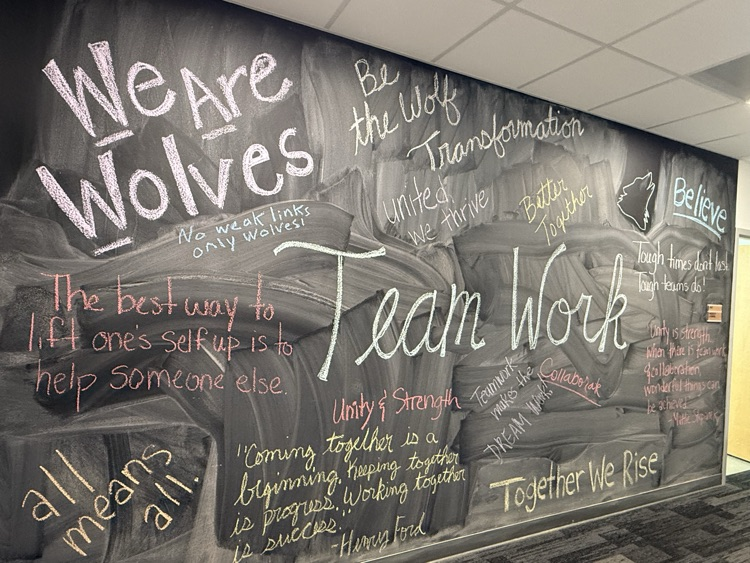 We Are
Wolves
No weak links
only Wolves!
Be
the Wolf
Transformation
united,
we thrive
Better
Together
Believe
Tough times don't last
Tough teams do!
Team Work
The best way to
lift one's self up is to
help someone else.
Unity & Strength
Teamwork
makes the
DREAM Work
Collaborate
Unity is strength,
when there is teamwork
& collaboration,
wonderful things can
be achieved.
"Coming together is a
beginning, keeping together
is progress. Working together
is success."
-Henry Ford
Together We Rise
all
means
all.